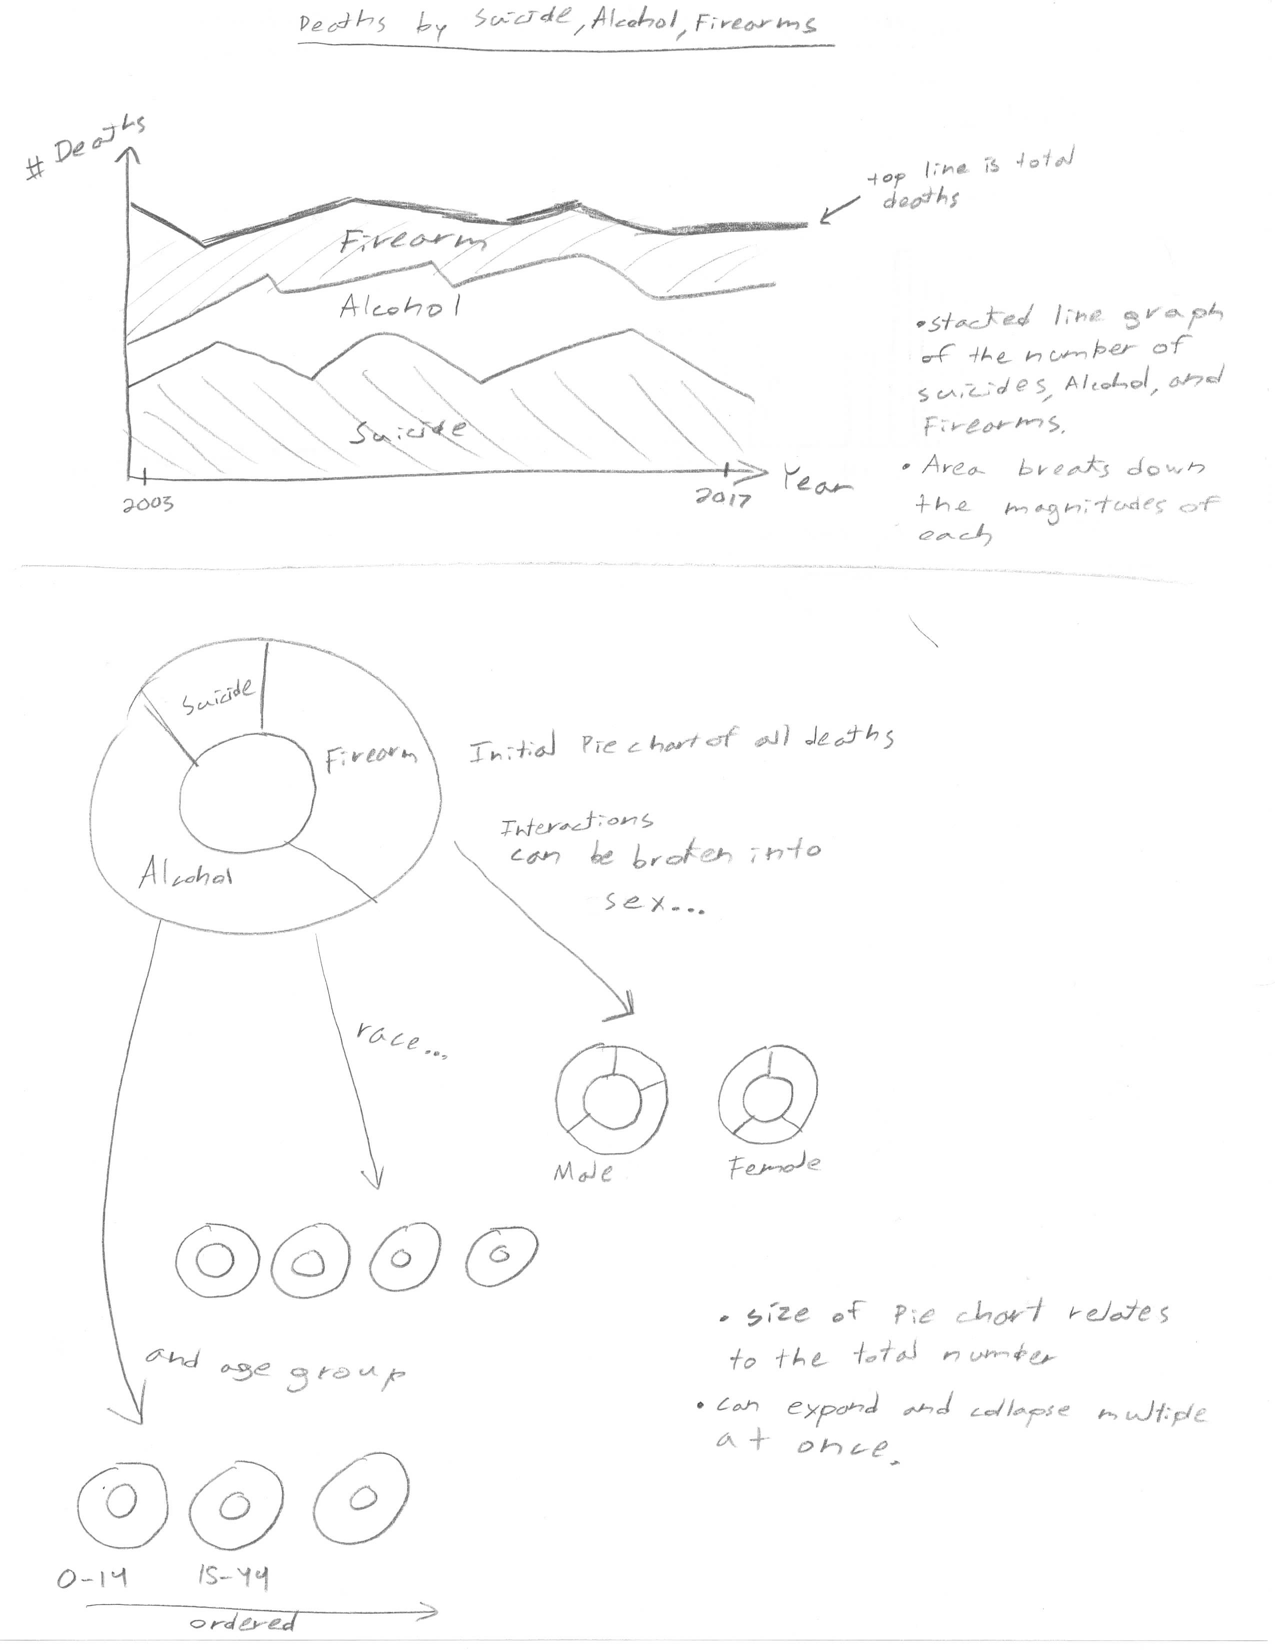 Deaths by Suicide, Alcohol, Firearms
# Deaths
top line is total
deaths
Firearm
Alcohol
Suicide
2003
2017
Year
• stacked line graph
of the number of
suicides, Alcohol, and
Firearms.
• Area breaks down
the magnitudes of
each
Suicide
Firearm
Alcohol
Initial Pie chart of all deaths
Interactions
can be broken into
sex...
race...
Male
Female
and age group
• size of Pie chart relates
to the total number
• can expand and collapse multiple
at once.
0-14
15-44
ordered